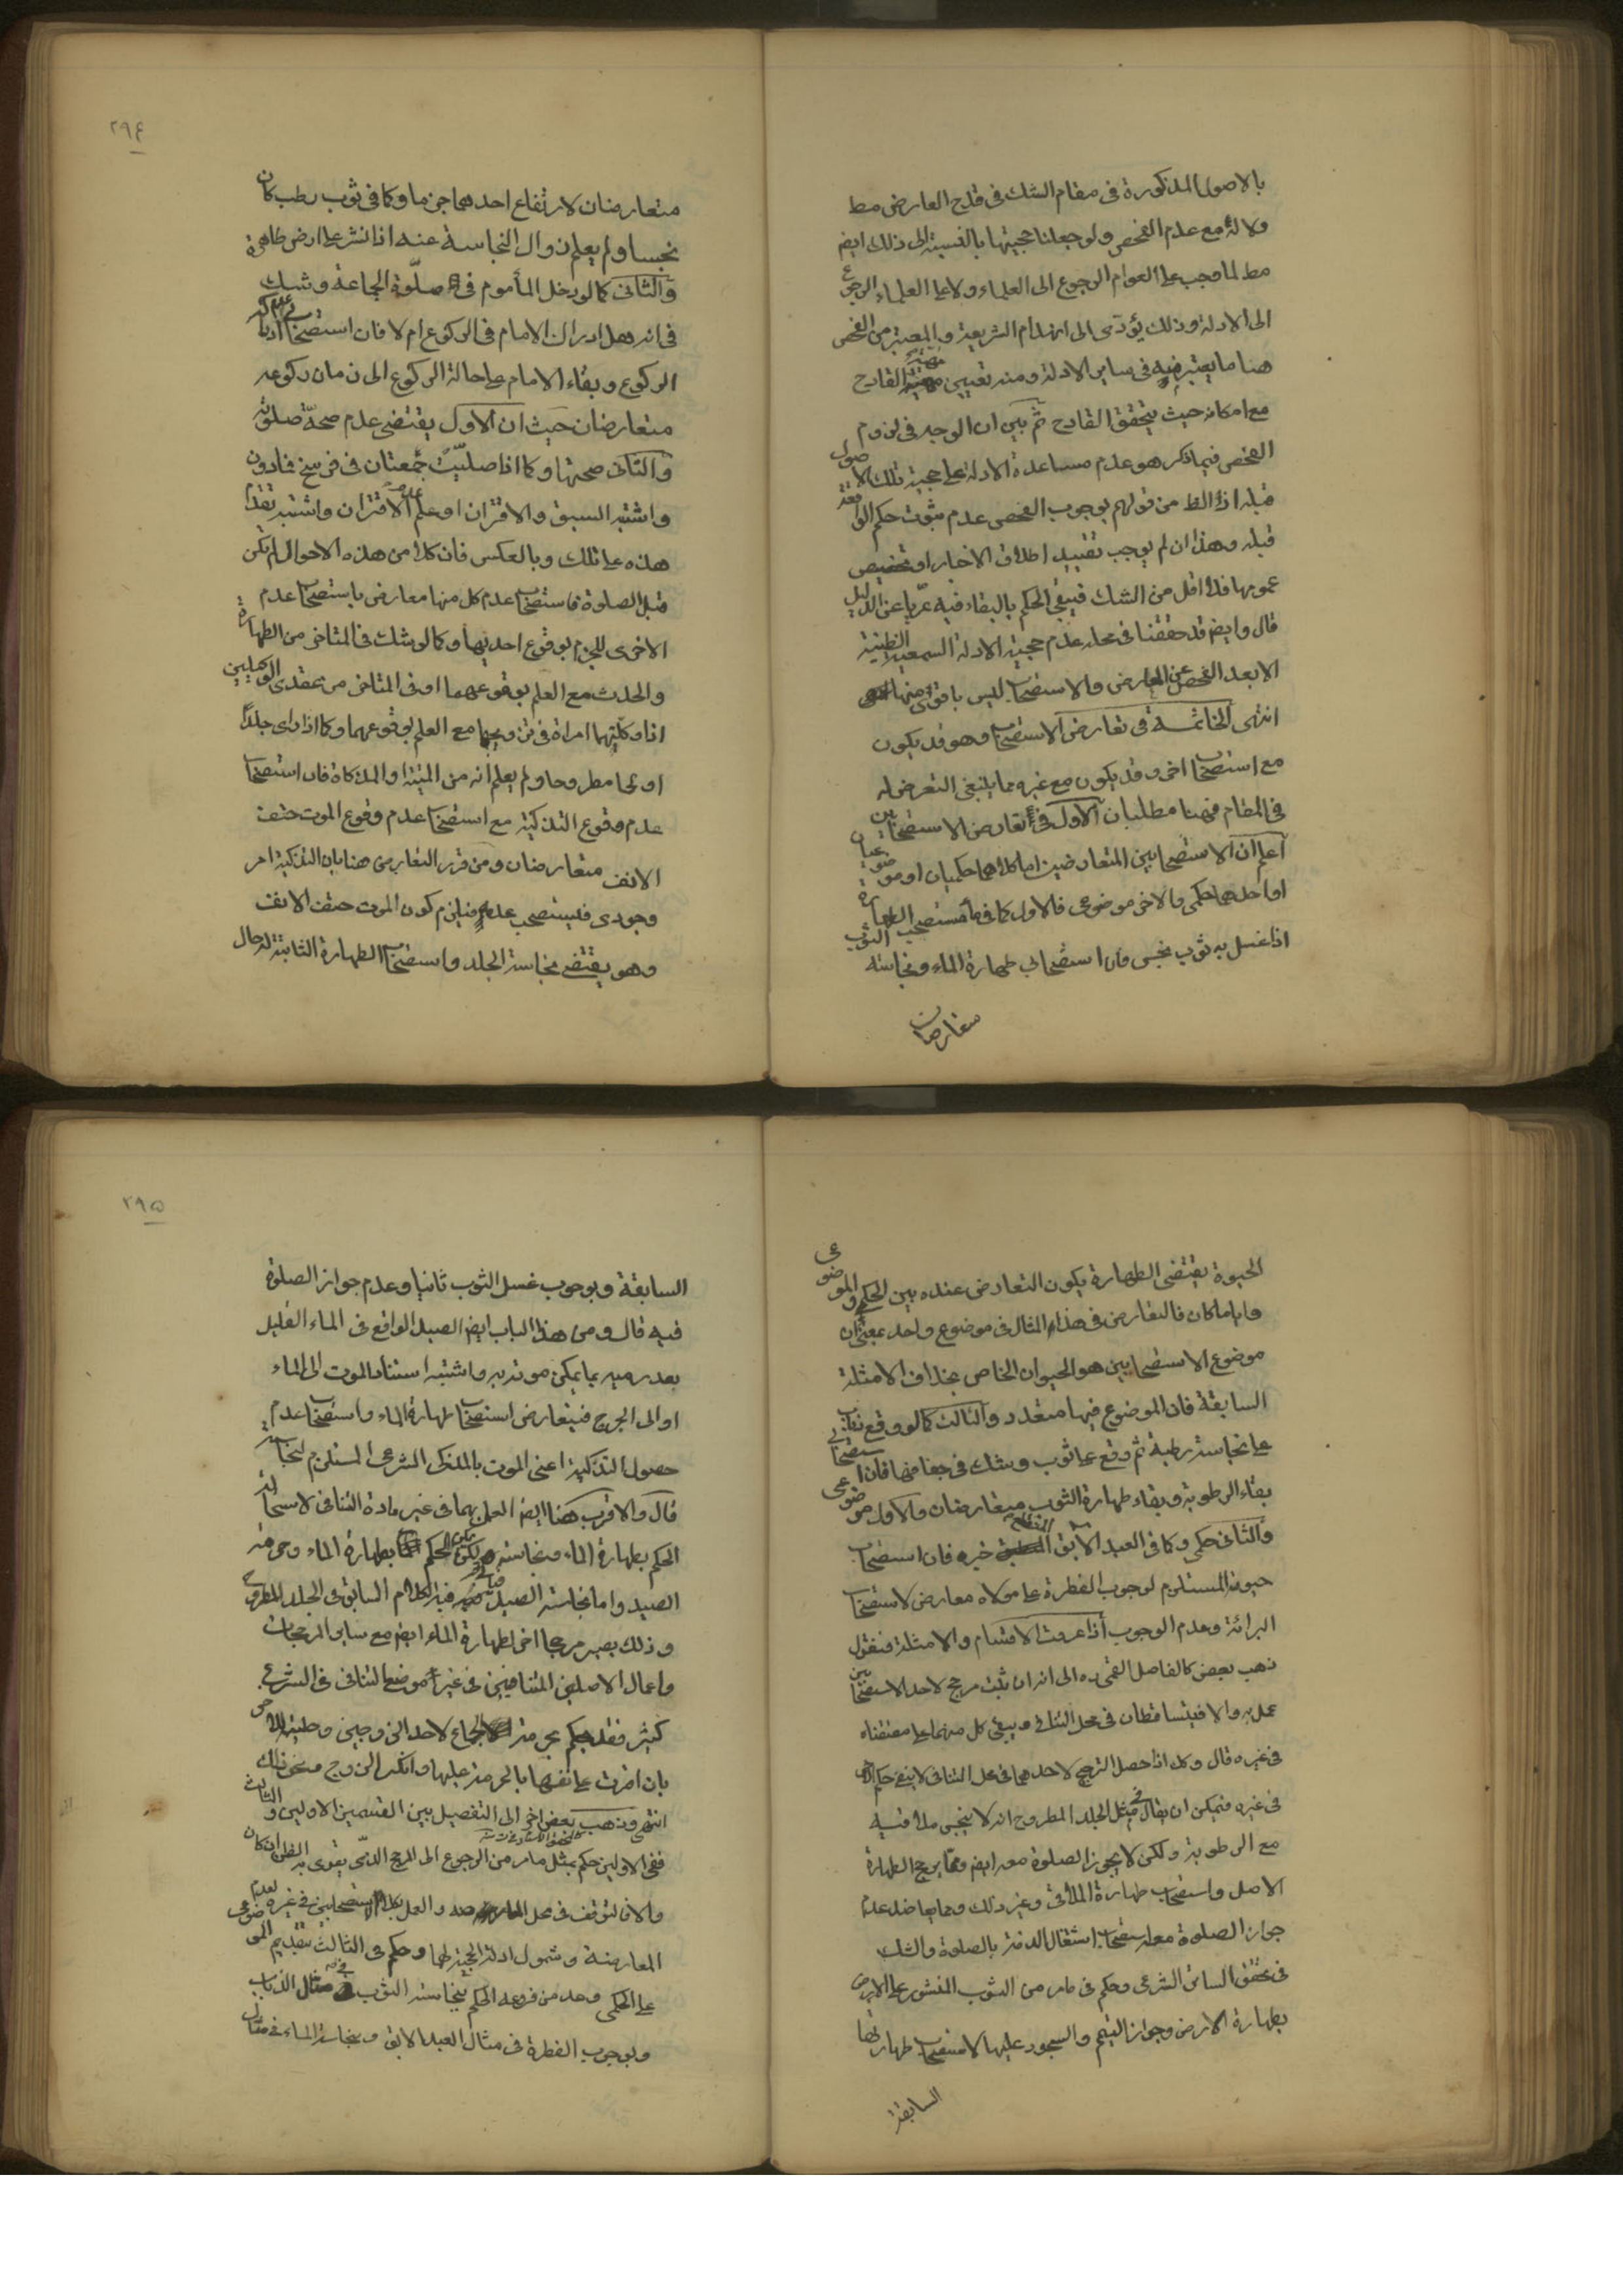 بالاصول المذكورة فى مقام الشك فى قدح العارض مط
ولا لأمع عدم الفحص ولو جعلنا حجيتها بالنسبة الى ذلك ايض
مط لما وجب على العوام الرجوع الى العلماء ولا على العلماء الرجوع
الى الادلة وذلك يؤدى الى انهدام الشريعة والمعتبر من الفحص
هنا ما يعتبر فيه فى ساير الادلة ومنه تعيين القادح
مع امكانه حيث يتحقق القادح ثم بين ان الوجه فى لزوم
الفحص فيما ذكر هو عدم مساعدة الادلة على حجية تلك الاصول
قبله اذ الظ من قولهم بوجوب الفحص عدم ثبوت حكم الواقعة
قبله وهذا ان لم يوجب تقييد اطلاق الاخبار او تخصيص
عمومها فلا اقل من الشك فيبقى الحكم بالبقاء فيه عريا عن الدليل
قال وايض قد حققنا فى محله عدم حجية الادلة السمعية الظنية
الا بعد الفحص عن المعارض والاستصحاب ليس باقوى منها
انتهى الخاتمة فى تعارض الاستصحاب وهو قد يكون
مع استصحاب اخر وقد يكون مع غيره مما ينبغى التعرض له
فى المقام فهنا مطلبان الاول فى تعارض الاستصحابين
اعلم ان الاستصحابين المتعارضين اما كلاهما حكميان او موضوعيان
او احدهما حكمى والاخر موضوعى فالاول كما فى ماء مستصحب الطهارة
اذا غسل به ثوب نجس فان استصحابى طهارة الماء ونجاسة الثوب
متعارضان
٢٩٤
متعارضان لارتفاع احدهما جزما وكما فى ثوب رطب كان
نجسا ولم يعلم زوال النجاسة عنه اذا نشر على ارض طاهرة
والثانى كما لو دخل المأموم فى صلوة الجماعة وشك
فى انه هل ادرك الامام فى الركوع ام لا فان استصحابى عدم ادراك
الركوع وبقاء الامام على حالة الركوع الى زمان ركوعه
متعارضان حيث ان الاول يقتضى عدم صحة صلوته
والثانى صحتها وكما اذا صليت جمعتان فى فرسخ فما دون
واشتبه السبق والاقتران او علم عدم الاقتران واشتبه تقدم
هذه على تلك وبالعكس فان كلا من هذه الاحوال لم تكن
قبل الصلوة فاستصحاب عدم كل منها معارض باستصحاب عدم
الاخرى للجزم بوقوع احديها وكما لو شك فى المتاخر من الطهارة
والحدث مع العلم بوقوعهما او فى المتاخر من عقدى الوكيلين
اذا وكلتهما امراة فى تزويجها مع العلم بوقوعهما وكما اذا راى جلدا
او لحما مطروحا ولم يعلم انه من الميتة او المذكاة فان استصحاب
عدم وقوع التذكية مع استصحاب عدم وقوع الموت حتف
الانف متعارضان ومن قرر التعارض هنا بان التذكية امر
وجودى فيستصحب عدمه فيلزم كون الموت حتف الانف
وهو يقتضى نجاسة الجلد واستصحاب الطهارة الثابتة له حال
الحيوة يقتضى الطهارة يكون التعارض عنده بين الحكمى والموضوعى
وايا ما كان فالتعارض فى هذا المثال فى موضوع واحد بمعنى ان
موضوع الاستصحابين هو الحيوان الخاص بخلاف الامثلة
السابقة فان الموضوع فيها متعدد والثالث كما لو وقع ذباب
على نجاسة رطبة ثم وقع على ثوب وشك فى جفافها فان استصحابى
بقاء الرطوبة وبقاء طهارة الثوب متعارضان والاول موضوعى
والثانى حكمى وكما فى العبد الابق المنقطع خبره فان استصحاب
حيوته المستلزم لوجوب الفطرة على مولاه معارض لاستصحاب
البرائة وعدم الوجوب اذا عرفت الاقسام والامثلة فنقول
ذهب بعض كالفاضل القمى ره الى انه ان ثبت مرجح لاحد الاستصحابين
عمل به والا فيتساقطان فى محل التنافى ويبقى كل منهما على مقتضاه
فى غيره قال وكك اذا حصل الترجيح لاحدهما فى محل التنافى لا ينفى حكم الاخر
فى غيره فيمكن ان يقال فى مثل الجلد المطروح انه لا ينجس ملاقيه
مع الرطوبة ولكن لا يجوز الصلوة معه ايض ومما يرجح الطهارة
الاصل واستصحاب طهارة الملاقى وغير ذلك ومما يعاضد عدم
جواز الصلوة معه استصحاب اشتغال الذمة بالصلوة والشك
فى تحقق الساتر الشرعى وحكم فى مامر من الثوب المنشور على الارض
بطهارة الارض وجواز التيمم والسجود عليها لاستصحاب طهارتها
السابقة
٢٩٥
السابقة وبوجوب غسل الثوب ثانيا وعدم جواز الصلوة
فيه قال ومن هذا الباب ايض الصيد الواقع فى الماء القليل
بعد رميه بما يمكن موته به واشتبه استناد الموت الى الماء
او الى الجرح فيتعارض استصحاب طهارة الماء واستصحاب عدم
حصول التذكية اعنى الموت بالمذكى الشرعى المستلزم لنجاسته
قال والاقرب هنا ايض العمل بهما فى غير مادة التنافى لاستحالة
الحكم بطهارة الماء ونجاسته يمكن الحكم بطهارة الماء وحرمة
الصيد واما نجاسة الصيد ففيه الكلام السابق فى الجلد المطروح
وذلك يصير مرجحا اخر لطهارة الماء ايض مع ساير المرجحات
واعمال الاصلين المتنافيين فى غير موضع التنافى فى الشرع
كثير فقد يحكم بحرمة الجماع لاحد الزوجين وحليته للاخر
بان اقرت على نفسها بالحرمة عليها وانكر الزوج ونحو ذلك
انتهى وذهب بعض اخر الى التفصيل بين القسمين الاولين والثالث
ففى الاولين حكم بمثل مامر من الرجوع الى المرجح الذى يقوى به الظن ان كان
والا فالتوقف فى محل المعارضة والعمل بكلا الاستصحابين فى غيره لعدم
المعارضة وشمول ادلة الحجية لها وحكم فى الثالث بتقديم الموضوعى
على الحكمى وعد من فروعه الحكم بنجاسة الثوب فى مثال الذباب
وبوجوب الفطرة فى مثال العبد الابق وبنجاسة الماء فى مثال